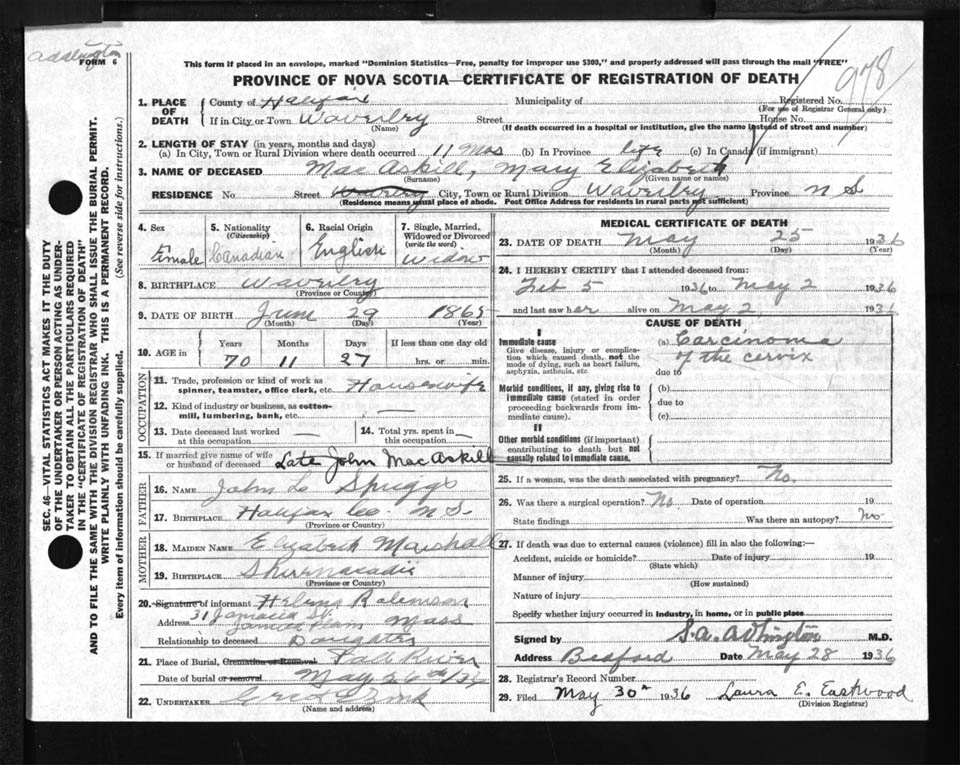 FORM 6
This form if placed in an envelope, marked "Dominion Statistics—Free, penalty for improper use $300," and properly addressed will pass through the mail "FREE"
PROVINCE OF NOVA SCOTIA—CERTIFICATE OF REGISTRATION OF DEATH
978
1. PLACE OF DEATH County of Halifax Municipality of Registered No.
(For use of Registrar General only)
If in City or Town Waverley Street House No.
(Name) (If death occurred in a hospital or institution, give the name instead of street and number)
2. LENGTH OF STAY (in years, months and days)
(a) In City, Town or Rural Division where death occurred 11 Mos (b) In Province life (c) In Canada (if immigrant)
3. NAME OF DECEASED MacAskill, Mary Elizabeth
(Surname) (Given name or names)
RESIDENCE No Street Waverley City, Town or Rural Division Waverley Province N S
(Residence means usual place of abode. Post Office Address for residents in rural parts not sufficient)
4. Sex Female
5. Nationality (Citizenship) Canadian
6. Racial Origin English
7. Single, Married, Widowed or Divorced (write the word) Widow
8. BIRTHPLACE Waverley
(Province or Country)
9. DATE OF BIRTH June 29 1865
(Month) (Day) (Year)
10. AGE in Years Months Days If less than one day old
70 11 27 hrs. or min.
OCCUPATION
11. Trade, profession or kind of work as spinner, teamster, office clerk, etc. Housewife
12. Kind of industry or business, as cotton-mill, lumbering, bank, etc. —
13. Date deceased last worked at this occupation —
14. Total yrs. spent in this occupation —
15. If married give name of wife or husband of deceased Late John MacAskill
FATHER
16. NAME John Spriggs
17. BIRTHPLACE Halifax Co. N S.
(Province or Country)
MOTHER
18. MAIDEN NAME Elizabeth Marshall
19. BIRTHPLACE Shubenacadie
(Province or Country)
20. Signature of informant Helena Robinson
Address 31 Jamaica St
Jamaica Plain Mass
Relationship to deceased Daughter
21. Place of Burial, Cremation or Removal Fall River
Date of burial or removal May 26th/36
22. UNDERTAKER
(Name and address)
MEDICAL CERTIFICATE OF DEATH
23. DATE OF DEATH May 25 1936
(Month) (Day) (Year)
24. I HEREBY CERTIFY that I attended deceased from:
Feb 5 1936 to May 2 1936
and last saw her alive on May 2 1936
CAUSE OF DEATH
I
Immediate cause (a) Carcinoma
Give disease, injury or complication which caused death, not the mode of dying, such as heart failure, asphyxia, asthenia, etc
of the cervix
due to
Morbid conditions, if any, giving rise to immediate cause (stated in order proceeding backwards from immediate cause).
(b)
due to
(c)
II
Other morbid conditions (if important) contributing to death but not causally related to immediate cause.
25. If a woman, was the death associated with pregnancy? No.
26. Was there a surgical operation? No. Date of operation 19
State findings Was there an autopsy? No
27. If death was due to external causes (violence) fill in also the following:—
Accident, suicide or homicide? Date of injury 19
(State which)
Manner of injury
(How sustained)
Nature of injury
Specify whether injury occurred in industry, in home, or in public place
Signed by M.D.
Address Bedford Date May 28 1936
28. Registrar's Record Number
29. Filed May 30th 1936 Laura E. Eastwood
(Division Registrar)
SEC. 46—VITAL STATISTICS ACT MAKES IT THE DUTY
OF THE UNDERTAKER OR PERSON ACTING AS UNDER-
TAKER TO OBTAIN ALL THE PARTICULARS REQUIRED
IN THE "CERTIFICATE OF REGISTRATION OF DEATH"
AND TO FILE THE SAME WITH THE DIVISION REGISTRAR WHO SHALL ISSUE THE BURIAL PERMIT.
WRITE PLAINLY WITH UNFADING INK. THIS IS A PERMANENT RECORD.
Every item of information should be carefully supplied. (See reverse side for instructions.)